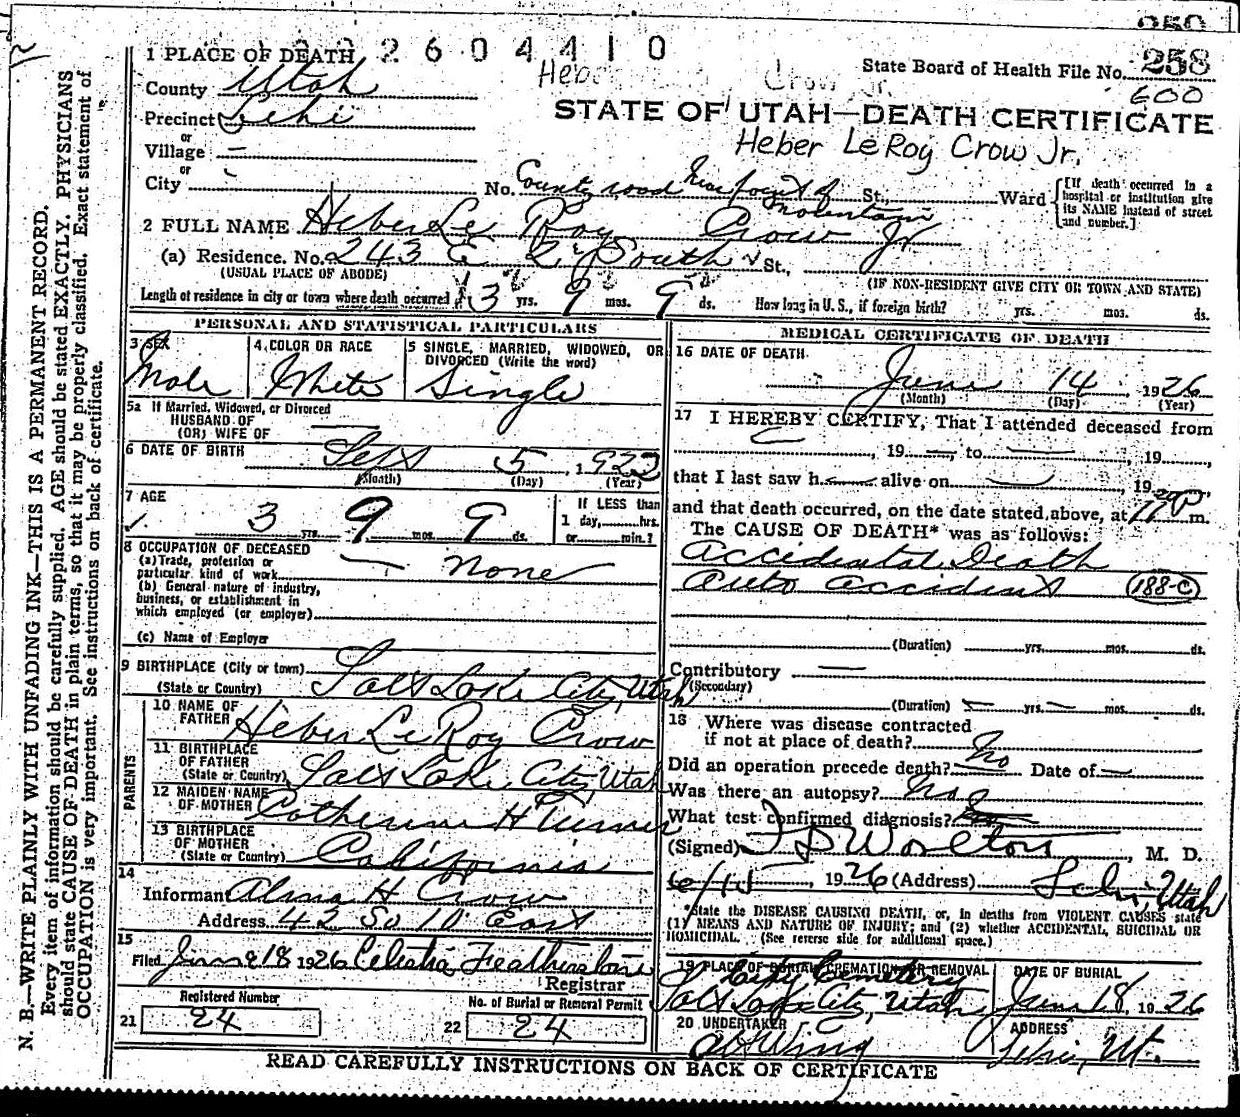 250
1 2 6 0 4 4 1 0
1 PLACE OF DEATH
Heber Crow Jr.
State Board of Health File No. 258
600
County Utah
STATE OF UTAH—DEATH CERTIFICATE
Precinct Lehi
Heber LeRoy Crow Jr.
or
Village —
or
City
No. County road near point of mountain St., Ward
[If death occurred in a hospital or institution give its NAME instead of street and number.]
2 FULL NAME Heber Le Roy Crow Jr
(a) Residence. No. 243 E South St.,
(USUAL PLACE OF ABODE)
(IF NON-RESIDENT GIVE CITY OR TOWN AND STATE)
Length of residence in city or town where death occurred 3 yrs. 9 mos. 9 ds. How long in U. S., if foreign birth? yrs. mos. ds.
PERSONAL AND STATISTICAL PARTICULARS
3 SEX
Male
4 COLOR OR RACE
White
5 SINGLE, MARRIED, WIDOWED, OR DIVORCED (Write the word)
Single
5a If Married, Widowed, or Divorced
HUSBAND OF
(OR) WIFE OF —
6 DATE OF BIRTH
Sept 5, 1922
(Month) (Day) (Year)
7 AGE
3 yrs. 9 mos. 9 ds.
If LESS than
1 day, hrs.
or min.?
8 OCCUPATION OF DECEASED
(a) Trade, profession or
particular kind of work — none
(b) General nature of industry,
business, or establishment in
which employed (or employer)
(c) Name of Employer
9 BIRTHPLACE (City or town)
(State or Country) Salt Lake City, Utah
PARENTS
10 NAME OF
FATHER Heber LeRoy Crow
11 BIRTHPLACE
OF FATHER
(State or Country) Salt Lake City, Utah
12 MAIDEN NAME
OF MOTHER Catherine H Turner
13 BIRTHPLACE
OF MOTHER
(State or Country) California
14
Informant Alma H Crow
Address 42 So 10 East
15
Filed June 18 1926 Celestia Featherstone
Registrar
Registered Number
21 24
No. of Burial or Removal Permit
22 24
MEDICAL CERTIFICATE OF DEATH
16 DATE OF DEATH
June 14, 1926
(Month) (Day) (Year)
17 I HEREBY CERTIFY, That I attended deceased from
—, 19 —, to —, 19
that I last saw h— alive on —, 19
and that death occurred, on the date stated above, at P m.
The CAUSE OF DEATH* was as follows:
Accidental Death
Auto accident (188-C)
(Duration) yrs. mos. ds.
Contributory —
(Secondary)
(Duration) — yrs. — mos. ds.
18 Where was disease contracted
if not at place of death?
Did an operation precede death? No Date of —
Was there an autopsy? No
What test confirmed diagnosis?
(Signed) Worlton, M. D.
6/15, 1926 (Address) Lehi, Utah
*State the DISEASE CAUSING DEATH, or, in deaths from VIOLENT CAUSES state
(1) MEANS AND NATURE OF INJURY; and (2) whether ACCIDENTAL, SUICIDAL OR
HOMICIDAL. (See reverse side for additional space.)
19 PLACE OF BURIAL, CREMATION, OR REMOVAL
City Cemetery
Salt Lake City, Utah
DATE OF BURIAL
June 18, 1926
20 UNDERTAKER
Wing
ADDRESS
Lehi, Ut.
READ CAREFULLY INSTRUCTIONS ON BACK OF CERTIFICATE
N. B.—WRITE PLAINLY WITH UNFADING INK—THIS IS A PERMANENT RECORD.
Every item of information should be carefully supplied. AGE should be stated EXACTLY. PHYSICIANS
should state CAUSE OF DEATH in plain terms, so that it may be properly classified. Exact statement of
OCCUPATION is very important. See instructions on back of certificate.